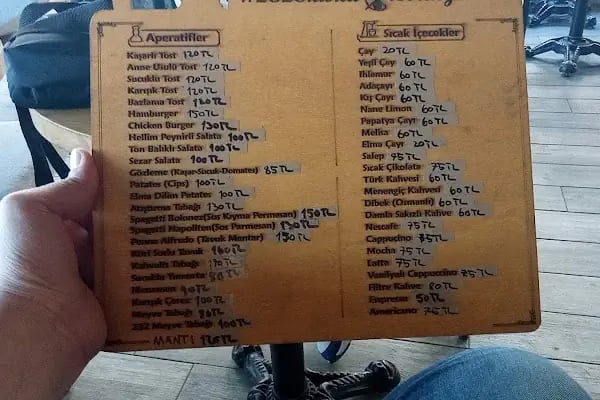 Aperatifler
Kaşarlı Tost 120TL
Anne Usulü Tost 120TL
Sucuklu Tost 120TL
Karışık Tost 120TL
Bazlama Tost 120TL
Hamburger 150TL
Chicken Burger 130TL
Hellim Peynirli Salata 100TL
Ton Balıklı Salata 100TL
Sezar Salata 100TL
Gözleme (Kaşar-Sucuk-Domates) 85TL
Patates (Cips) 100TL
Elma Dilim Patates 100TL
Atıştırma Tabağı 130TL
Spagetti Bolonez(Sos Kıyma Permesan) 150TL
Spagetti Napoliten(Sos Parmesan) 130TL
Penne Alfredo (Tavuk Mantar) 150TL
Köri Soslu Tavuk 160TL
Kahvaltı Tabağı
Sucuklu Yumurta 80TL
Menemen 90TL
Karışık Çerez 100TL
Meyve Tabağı 80TL
232 Meyve Tabağı 100TL
MANTI
Sıcak İçecekler
Çay 20TL
Yeşil Çay 60TL
Ihlamur 60TL
Adaçayı 60TL
Kış Çayı 60TL
Nane Limon 60TL
Papatya Çayı 60TL
Melisa 60TL
Elma Çayı 20TL
Salep 75TL
Sıcak Çikolata 75TL
Türk Kahvesi 60TL
Menengiç Kahvesi 60TL
Dibek (Osmanlı) 60TL
Damla Sakızlı Kahve 60TL
Nescafe 75TL
Cappucino 75TL
Mocha 75TL
Latte 75TL
Vanilyalı Cappuccino 75TL
Filtre Kahve 80TL
Espresso 50TL
Americano 75TL